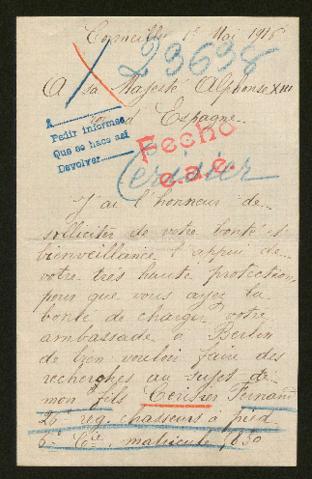 Corneilla 1er Mai 1916
23698
A sa Majesté Alphonse XIII
roi d'Espagne
A
Pedir informes
Que se hace así
Devolver
Fecho
e.a.e.
Cerisier
J'ai l'honneur de
solliciter de votre bonté et
bienveillance l'appui de
votre très haute protection
pour que vous ayez la
bonté de charger votre
ambassade à Berlin
de bien vouloir faire des
recherches au sujet de
mon fils Cerisier Fernand
reg. chasseurs à pied
6e Cie, matricule